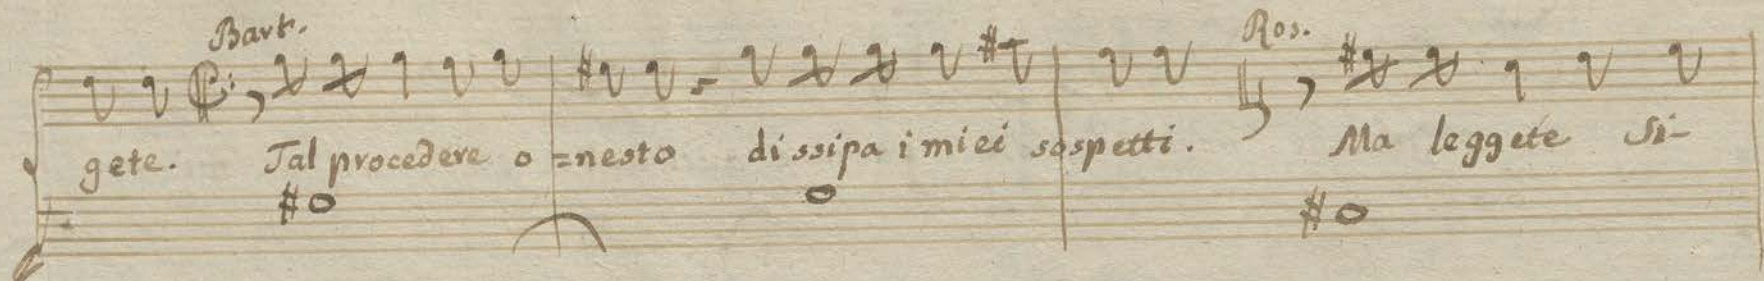 Bart. Ros.
gete. Tal procedere o=nesto dissipa i miei sospetti. Ma leggete Si-